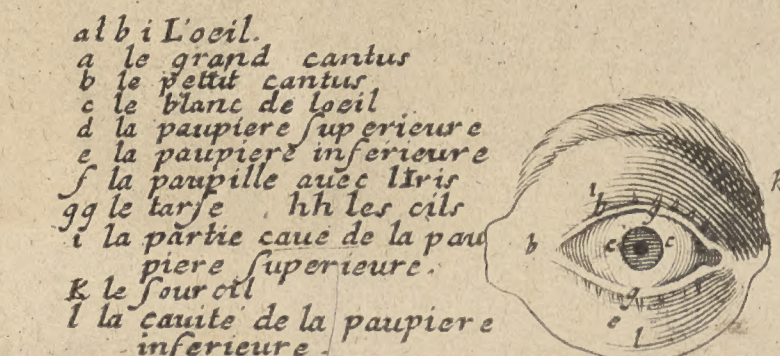 a l b i L'oeil.
a le grand cantus
b le petit cantus
c le blanc de loeil
d la paupiere ſuperieure
e la paupiere inferieure
f la paupille avec lIris
gg le tarſe hh les cils
i la partie caue de la pau
piere ſuperieure.
K le ſourcil
l la cauite de la paupiere
inferieure.
K
i
h g
b c c
g
e
l